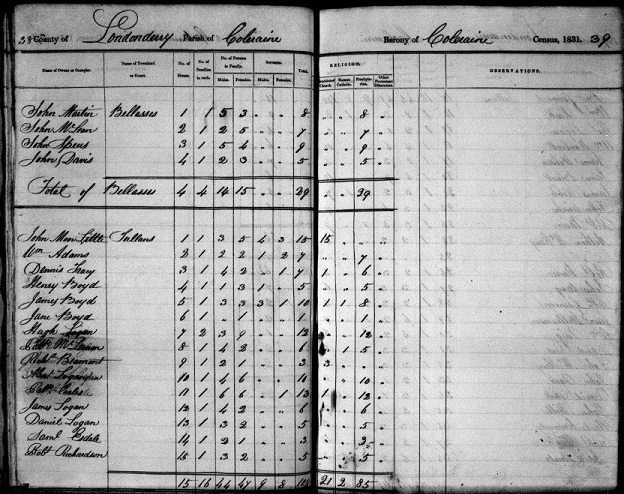 38 County of Londonderry Parish of Coleraine Barony of Coleraine Census, 1831. 39
Name of Owner or Occupier. Name of Townland or Street. No. of House. No. of Families in each. No. of Persons in Family. Males. Females. Servants. Males. Females. Total. RELIGION. Established Church. Roman Catholic. Presbyterian. Other Protestant Dissenters. OBSERVATIONS.
John Martin Bellasses 1 1 5 3 8 " " 8 "
John 2 1 2 5 7 " " 7 "
John Speers 3 1 5 4 9 " " 9 "
John Davis 4 1 2 3 5 " " 5 "
Total of Bellasses 4 4 14 15 29 39
John Moor Little 1 1 3 5 4 3 15 15 " " "
Wm Adams 2 1 2 2 1 2 7 " " 7 "
Dennis 3 1 4 2 " 1 7 1 " 6 "
Henry Boyd 4 1 1 3 1 " 5 " " 5 "
James Boyd 5 1 3 3 3 1 10 1 1 8 "
Jane Boyd 6 1 " 1 " " 1 " " 1 "
Hugh Logan 7 2 3 9 " " 12 " " 12 "
8 1 4 2 " " 6 " 1 5 "
Beamont 9 1 2 1 " " 3 3 " " "
10 1 4 6 " " 10 " " 10 "
11 1 6 6 " 1 13 1 " 12 "
James Logan 12 1 4 2 " " 6 " " 6 "
Daniel Logan 13 1 3 2 " " 5 " " 5 "
Saml Esdale 14 1 2 1 " " 3 " " 3 "
Robt Richardson 15 1 3 2 " " 5 " " 5 "
15 16 44 47 9 8 108 21 2 85